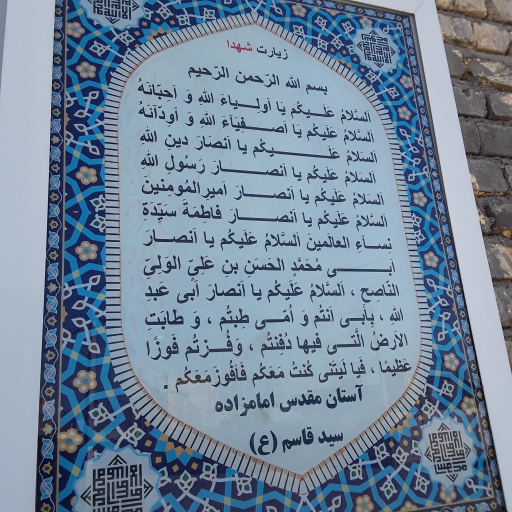 زیارت شهدا
بسم الله الرَحمن الرَحیم
اَلسَّلامُ عَلَیکُم یَا اَولِیاءَ اللهِ وَ اَحِبّائَهُ
اَلسَّلامُ عَلَیکُم یَا اَصفِیَآءَ اللهِ وَ اَوِدّآئَهُ
اَلسَلامُ عَلَیکُم یا اَنصَارَ دینِ اللهِ
اَلسَّلامُ عَلَیکُم یا اَنصارَ رَسُولِ اللهِ
اَلسَّلامُ عَلَیکُم یا اَنصارَ اَمیرِالمُومنین
اَلسَّلامُ عَلَیکُم یا اَنصارَ فاطِمَةَ سَیِّدَةِ
نِساءِ العالَمینَ اَلسَّلامُ عَلَیکُم یا اَنصارَ
اَبی مُحَمَّدٍ الحَسَنِ بنِ عَلِیٍّ الوَلِیِّ
النّاصِحِ ، اَلسَّلامُ عَلَیکُم یا اَنصارَ اَبی عَبدِ
اللهِ ، بِاَبی اَنتُم وَ اُمّی طِبتُم ، وَ طابَتِ
الاَرضُ الَّتی فیها دُفِنتُم ، وَ فُزتُم فَوزًا
عَظیمًا ، فَیا لَیتَنی کُنتُ مَعَکُم فَاَفُوزَ مَعَکُم .
آستان مقدس امامزاده
سید قاسم (ع)